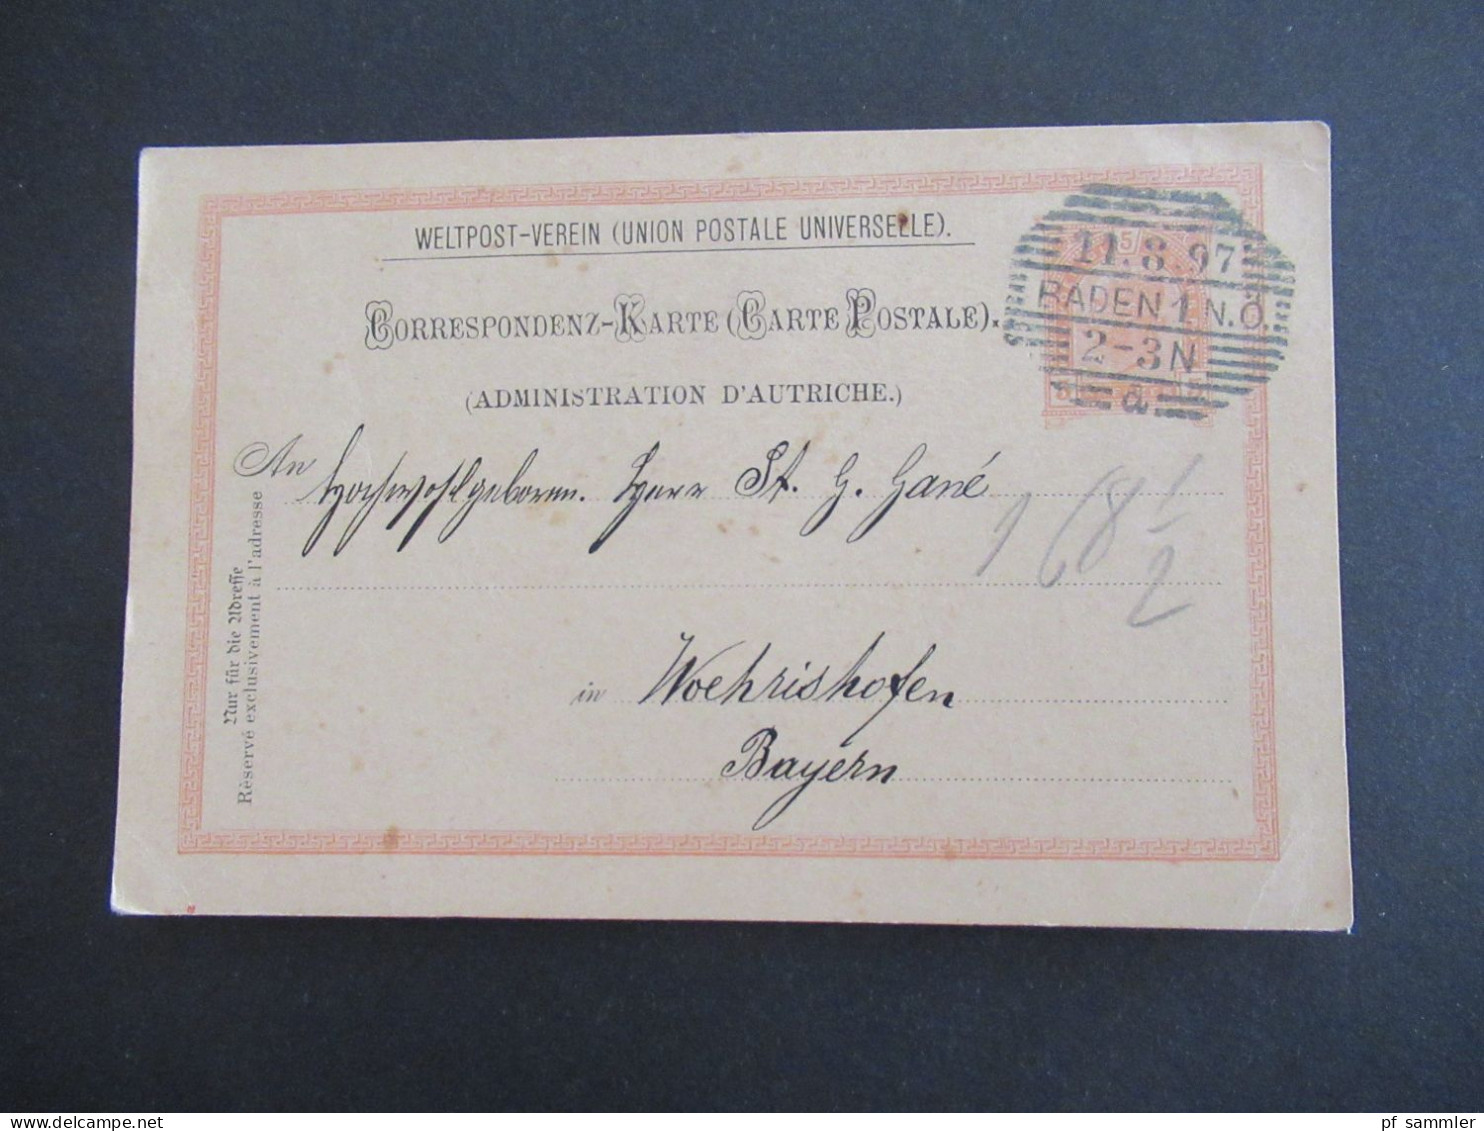 WELTPOST-VEREIN (UNION POSTALE UNIVERSELLE).
CORRESPONDENZ-KARTE (CARTE POSTALE).
(ADMINISTRATION D'AUTRICHE.)
5
11.8.97
BADEN 1 N.Ö.
2-3N
a
5
An
Hochwohlgeboren. Herr St. G. Gané
168 1/2
in Woehrishofen
Bayern
Nur für die Adresse
Réservé exclusivement à l'adresse
pf_sammler